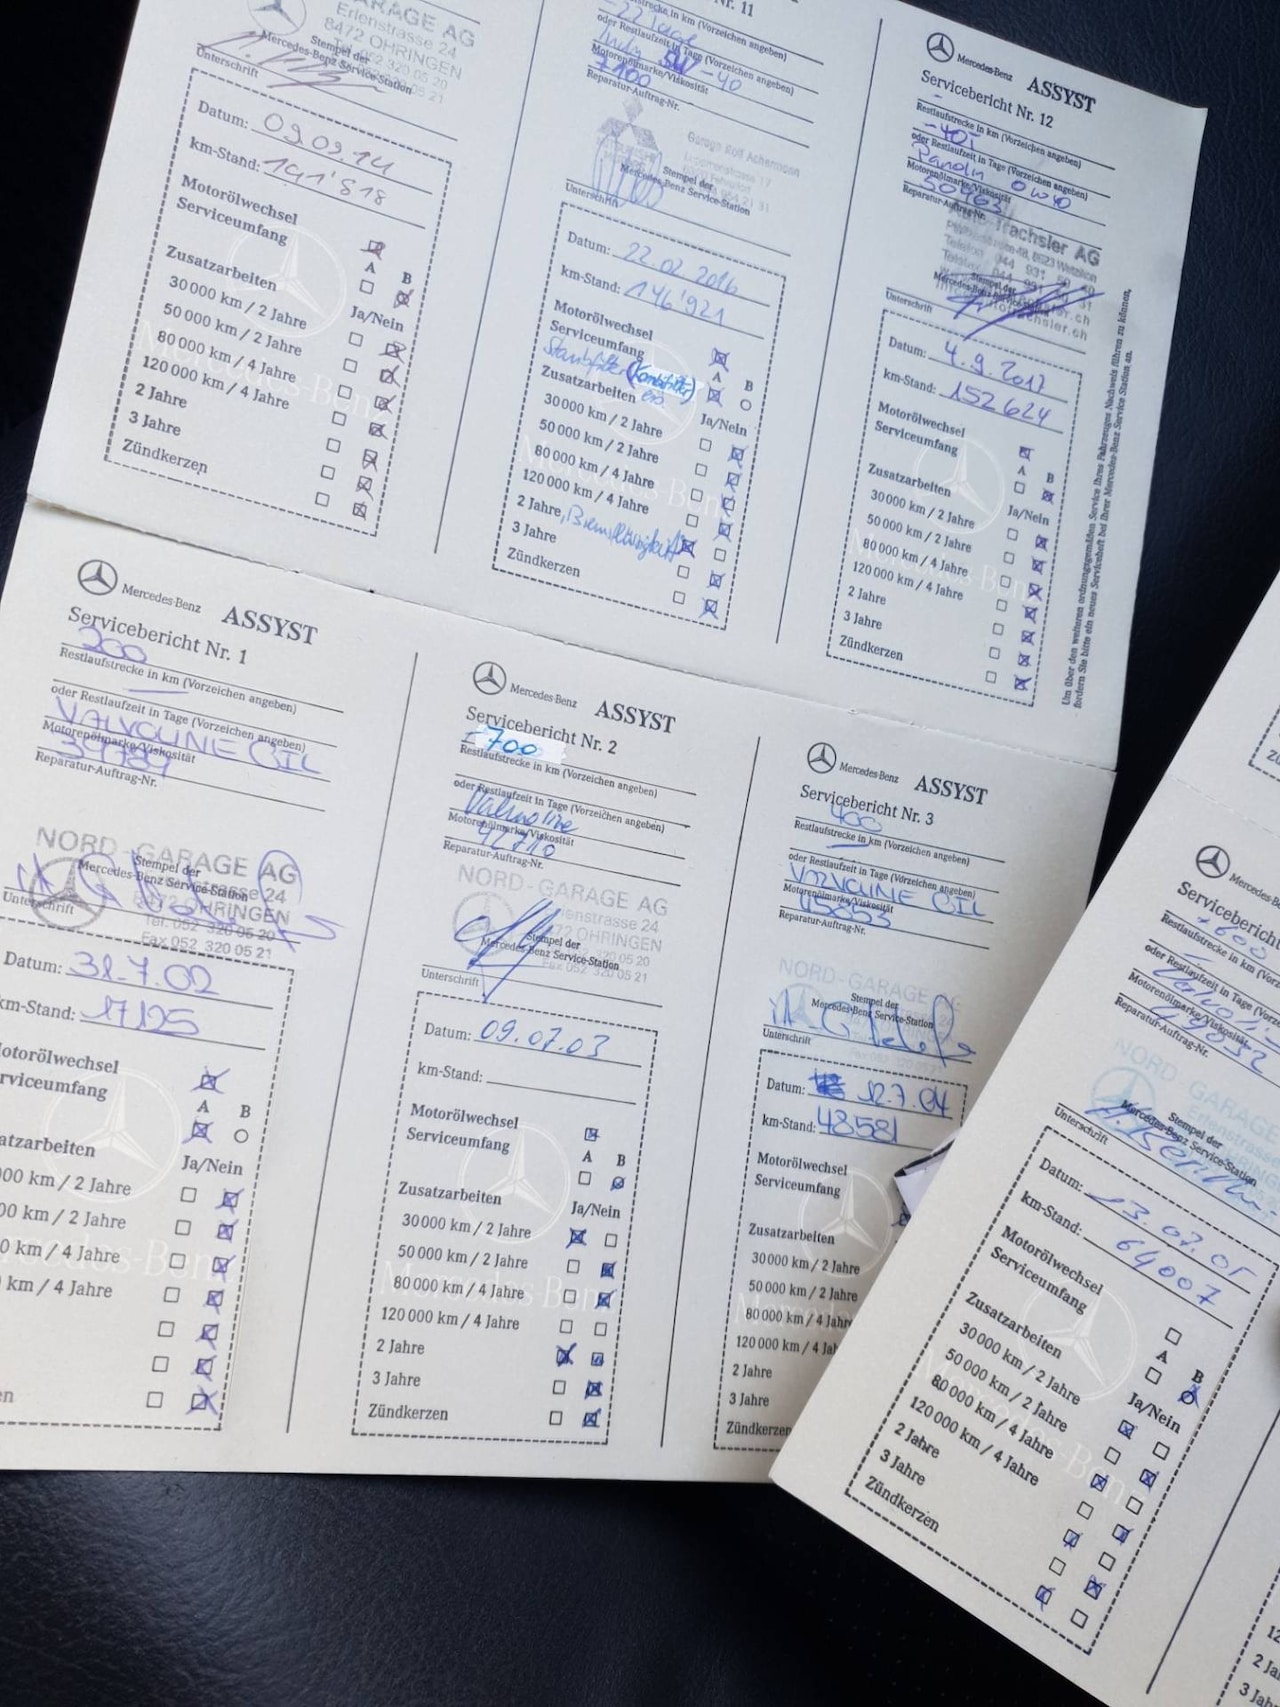 ARAGE AG
Erlenstrasse 24
8472 OHRINGEN
Tel. 052 320 05 20
Stempel der
Mercedes-Benz Service-Station
Unterschrift
Datum: 09.09.14
km-Stand: 141'818
Motorölwechsel
Serviceumfang
A B
Zusatzarbeiten
Ja/Nein
30 000 km / 2 Jahre
50 000 km / 2 Jahre
80 000 km / 4 Jahre
120 000 km / 4 Jahre
2 Jahre
3 Jahre
Zündkerzen
Nr. 11
-22 Tage
oder Restlaufzeit in Tage (Vorzeichen angeben)
Motorenölmarke/Viskosität
7100
Reparatur-Auftrag-Nr.
Garage Rolf Achermann
Stempel der
Mercedes-Benz Service-Station
Unterschrift
Datum: 22 02 2016
km-Stand: 146'921
Motorölwechsel
Serviceumfang
Staubfilter (Kombifilter)
A B
Zusatzarbeiten
Ja/Nein
30 000 km / 2 Jahre
50 000 km / 2 Jahre
80 000 km / 4 Jahre
120 000 km / 4 Jahre
2 Jahre, Bremsflüssigkeit
3 Jahre
Zündkerzen
Mercedes-Benz ASSYST
Servicebericht Nr. 12
-
Restlaufstrecke in km (Vorzeichen angeben)
-40T
oder Restlaufzeit in Tage (Vorzeichen angeben)
Panolin 0W40
Motorenölmarke/Viskosität
50463
Reparatur-Auftrag-Nr.
Trachsler AG
8623 Wetzikon
Stempel der
Mercedes-Benz Service-Station
Unterschrift
Datum: 4.9.2017
km-Stand: 152624
Motorölwechsel
Serviceumfang
A B
Zusatzarbeiten
Ja/Nein
30 000 km / 2 Jahre
50 000 km / 2 Jahre
80 000 km / 4 Jahre
120 000 km / 4 Jahre
2 Jahre
3 Jahre
Zündkerzen
Um über den weiteren ordnungsgemäßen Service Ihres Fahrzeuges Nachweis führen zu können,
fordern Sie bitte ein neues Serviceheft bei Ihrer Mercedes-Benz Service Station an.
Mercedes-Benz ASSYST
Servicebericht Nr. 1
300
Restlaufstrecke in km (Vorzeichen angeben)
oder Restlaufzeit in Tage (Vorzeichen angeben)
VALVOLINE OIL
Motorenölmarke/Viskosität
39789
Reparatur-Auftrag-Nr.
NORD-GARAGE AG
Erlenstrasse 24
8472 OHRINGEN
Tel. 052 320 05 20
Fax 052 320 05 21
Stempel der
Mercedes-Benz Service-Station
Unterschrift
Datum: 31.7.02
km-Stand: 17125
Motorölwechsel
rviceumfang
A B
satzarbeiten
Ja/Nein
000 km / 2 Jahre
00 km / 2 Jahre
0 km / 4 Jahre
km / 4 Jahre
en
Mercedes-Benz ASSYST
Servicebericht Nr. 2
-700
Restlaufstrecke in km (Vorzeichen angeben)
oder Restlaufzeit in Tage (Vorzeichen angeben)
Valvoline
Motorenölmarke/Viskosität
42710
Reparatur-Auftrag-Nr.
NORD-GARAGE AG
Erlenstrasse 24
8472 OHRINGEN
Tel. 052 320 05 20
Fax 052 320 05 21
Stempel der
Mercedes-Benz Service-Station
Unterschrift
Datum: 09.07.03
km-Stand:
Motorölwechsel
Serviceumfang
A B
Zusatzarbeiten
Ja/Nein
30 000 km / 2 Jahre
50 000 km / 2 Jahre
80 000 km / 4 Jahre
120 000 km / 4 Jahre
2 Jahre
3 Jahre
Zündkerzen
Mercedes-Benz ASSYST
Servicebericht Nr. 3
400
Restlaufstrecke in km (Vorzeichen angeben)
oder Restlaufzeit in Tage (Vorzeichen angeben)
VALVOLINE OIL
Motorenölmarke/Viskosität
45853
Reparatur-Auftrag-Nr.
NORD-GARAGE
Stempel der
Mercedes-Benz Service-Station
Unterschrift
Datum: 12.7.04
km-Stand: 48581
Motorölwechsel
Serviceumfang
Zusatzarbeiten
30 000 km / 2 Jahre
50 000 km / 2 Jahre
80 000 km / 4 Jahre
120 000 km / 4 Jah
2 Jahre
3 Jahre
Zündkerzen
Mercedes-Be
Servicebericht
-600
Restlaufstrecke in km (Vorz
oder Restlaufzeit in Tage (Vorz
Motorenölmarke/Viskosität
49032
Reparatur-Auftrag-Nr.
NORD-GARAGE
Erlenstrasse
Stempel der
Mercedes-Benz Service-Station
Unterschrift
Datum: 13.07.05
km-Stand: 64007
Motorölwechsel
Serviceumfang
A B
Zusatzarbeiten
Ja/Nein
30 000 km / 2 Jahre
50 000 km / 2 Jahre
80 000 km / 4 Jahre
120 000 km / 4 Jahre
2 Jahre
3 Jahre
Zündkerzen
12
2 Ja
3 Jah